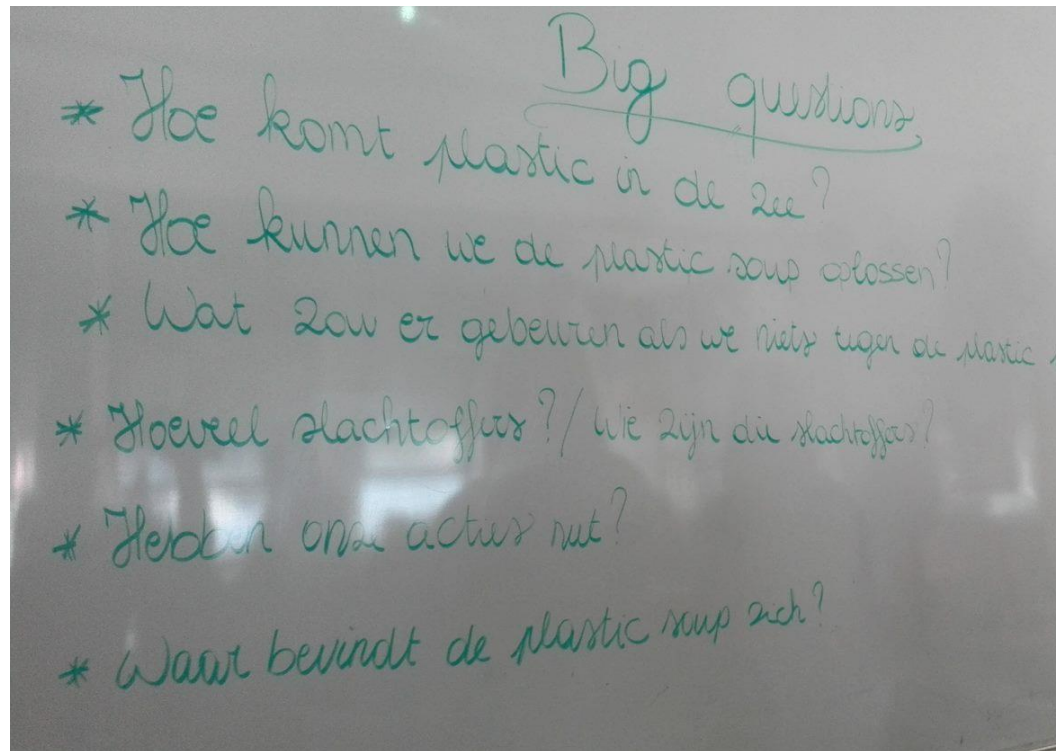 Big questions
* Hoe komt plastic in de zee?
* Hoe kunnen we de plastic soup oplossen?
* Wat zou er gebeuren als we niets tegen de plastic
* Hoeveel slachtoffers? / Wie zijn die slachtoffers?
* Hebben onze acties nut?
* Waar bevindt de plastic soup zich?